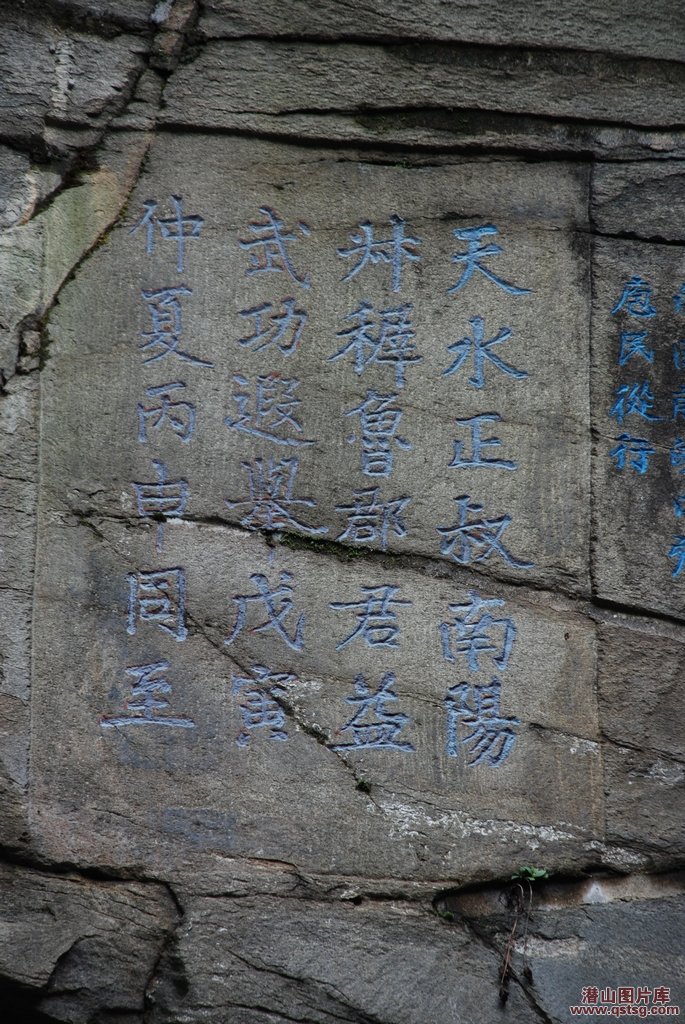 天水正叔南陽
艸穉魯郡君益
武功遐舉戊寅
仲夏丙申同至
應民從行
潜山图片库
www.qstsg.com